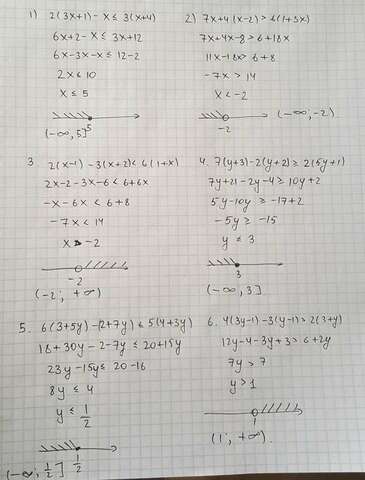 1) 2(3x+1) - x ≤ 3(x+4)
6x+2-x ≤ 3x+12
6x-3x-x ≤ 12-2
2x ≤ 10
x ≤ 5
5
(-∞, 5]
2) 7x+4(x-2) > 6(1+3x)
7x+4x-8 > 6+18x
11x-18x > 6+8
-7x > 14
x < -2
-2
(-∞; -2)
3. 2(x-1) - 3(x+2) < 6(1+x)
2x-2-3x-6 < 6+6x
-x-6x < 6+8
-7x < 14
x > -2
-2
(-2; +∞)
4. 7(y+3)-2(y+2) ≥ 2(5y+1)
7y+21-2y-4 ≥ 10y+2
5y-10y ≥ -17+2
-5y ≥ -15
y ≤ 3
3
(-∞, 3]
5. 6(3+5y)-(2+7y) ≤ 5(4+3y)
18+30y-2-7y ≤ 20+15y
23y-15y ≤ 20-16
8y ≤ 4
y ≤ 1/2
1/2
(-∞; 1/2]
6. 4(3y-1)-3(y-1) > 2(3+y)
12y-4-3y+3 > 6+2y
7y > 7
y > 1
1
(1; +∞).